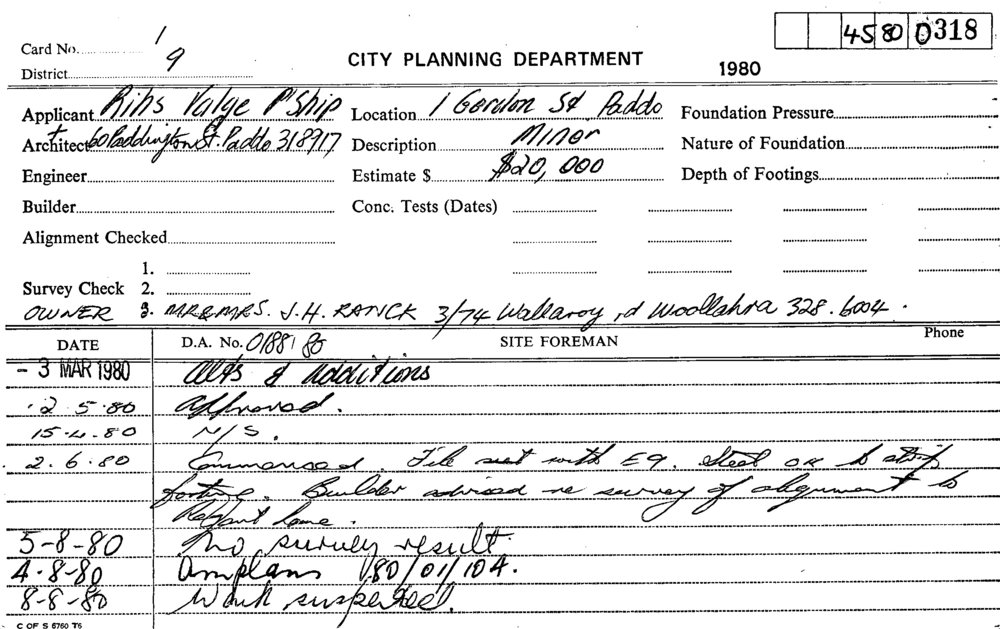 45 80 0318
Card No. 1
CITY PLANNING DEPARTMENT
District 9
1980
Applicant Rihs Valge P'Ship Location 1 Gordon St Paddo Foundation Pressure
+
Architect 60 Paddington St. Paddo 318917 Description Minor Nature of Foundation
Engineer Estimate $ $20,000 Depth of Footings
Builder Conc. Tests (Dates)
Alignment Checked
1.
Survey Check 2.
OWNER 3. MR & MRS. J.H. RANCK 3/74 Wallaroy rd Woollahra 328.6004.
DATE D.A. No. 0188/80 SITE FOREMAN Phone
- 3 MAR 1980 Alts & additions
2.5.80 Approved.
15-4.80 N/S.
2.6.80 Commenced. File met with E9. Steel OK to strip
footing. Builder advised re survey of alignment to
lane.
5-8-80 No survey result
4-8-80 Am plans 180/01/104.
8-8-80 Work suspended.
C OF S 6760 T6